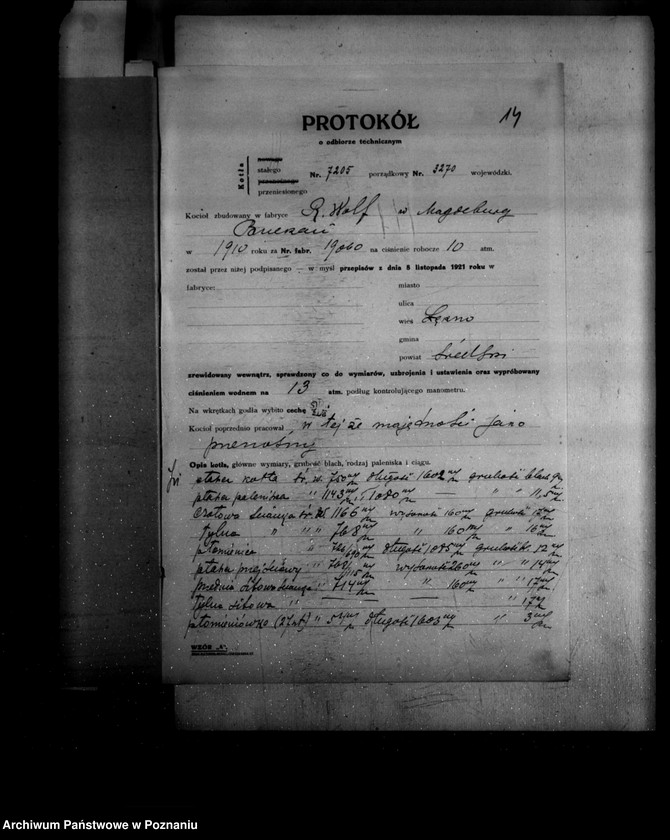 14
PROTOKÓŁ
o odbiorze technicznym
Kotła
stałego
przeniesionego
Nr. 7205 porządkowy Nr. 3270 wojewódzki.
Kocioł zbudowany w fabryce R. Wolf w Magdeburg
Buckau
w 1910 roku za Nr. fabr. na ciśnienie robocze 10 atm.
został przez niżej podpisanego — w myśl przepisów z dnia 8 listopada 1921 roku w
fabryce:
miasto
ulica
wieś
gmina
powiat
zrewidowany wewnętrz, sprawdzony co do wymiarów, uzbrojenia i ustawienia oraz wypróbowany
ciśnieniem wodnem na 13 atm. podług kontrolującego manometru.
Na wkrętkach godła wybito cechę
Kocioł poprzednio pracował w tejże majętności jako
przenośny
Opis kotła, główne wymiary, grubość blach, rodzaj paleniska i ciągu.
płaszcz kotła śr. w. 750 długość 1602 grubość blach 9
płaszcz paleniska " 1143 1080 — " " 11,5
czołowa ściana śr. 1166 wysokość 160 grubość 17
tylna " " " 768 " 160 " 16
płomienica " długość 1085 grubość 12
płaszcz wysokość 260 " " 14
przednia sitowa ściana " 714 " 160 " " 17
tylna sitowa " — — " 17
płomieniówki (27 szt) " długość 1603 " 3
WZÓR „4”.
Archiwum Państwowe w Poznaniu